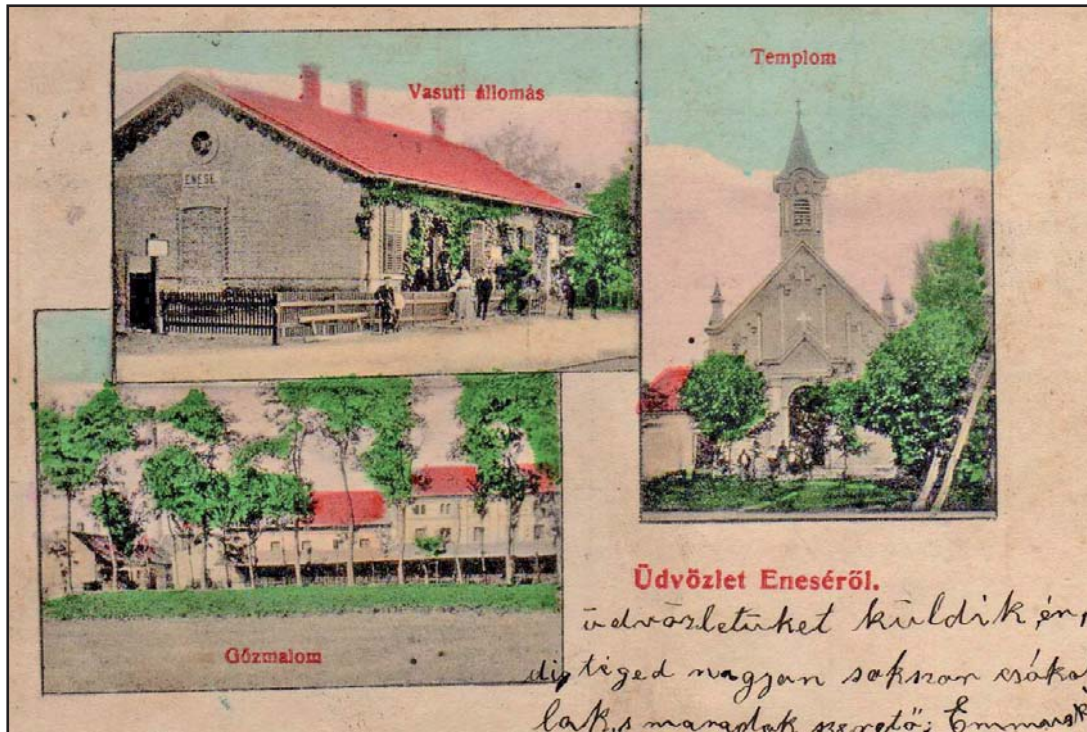 Vasuti állomás
ENESE
Templom
Gőzmalom
Üdvözlet Eneséről.
üdvözletüket küldik, én,
dig téged nagyon sokszor csóko,
lak, s maradok szerető;